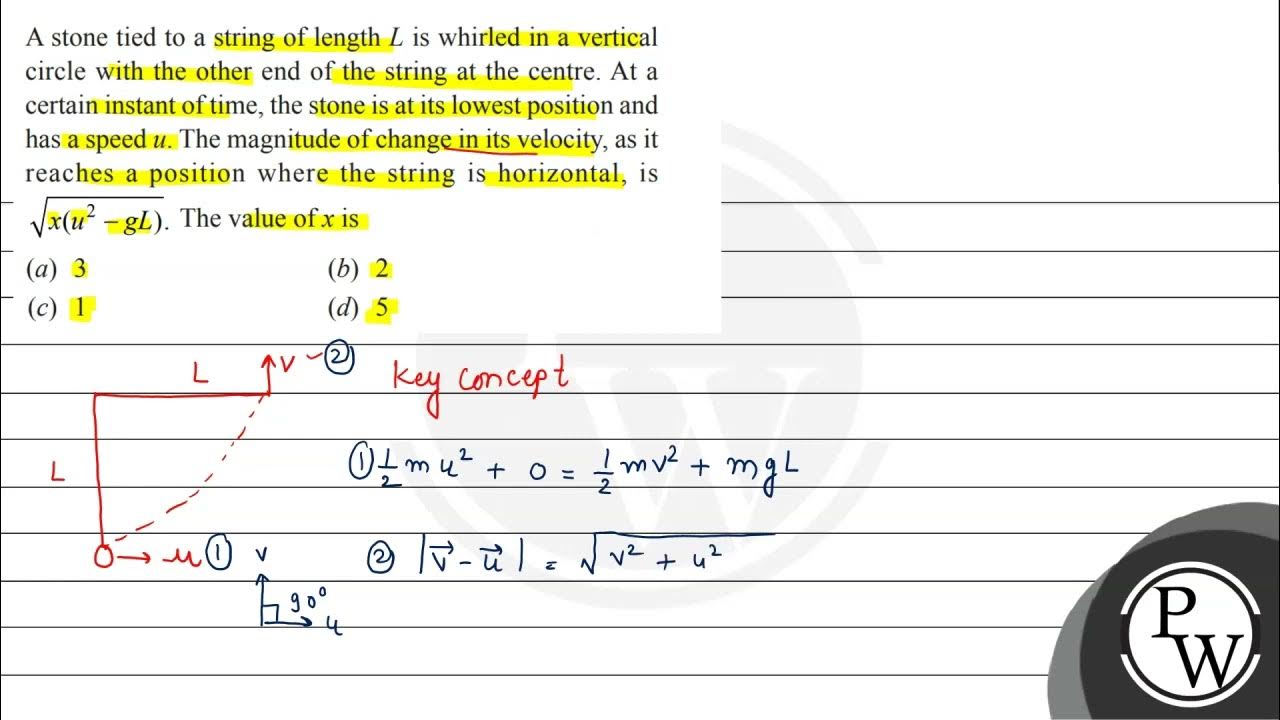 A stone tied to a string of length L is whirled in a vertical
circle with the other end of the string at the centre. At a
certain instant of time, the stone is at its lowest position and
has a speed u. The magnitude of change in its velocity, as it
reaches a position where the string is horizontal, is
√x(u² − gL). The value of x is
(a) 3 (b) 2
(c) 1 (d) 5
L v ② Key concept
L ① ½ m u² + 0 = ½ m v² + m g L
u ① v ② |v⃗ − u⃗| = √v² + u²
90° u
P
W